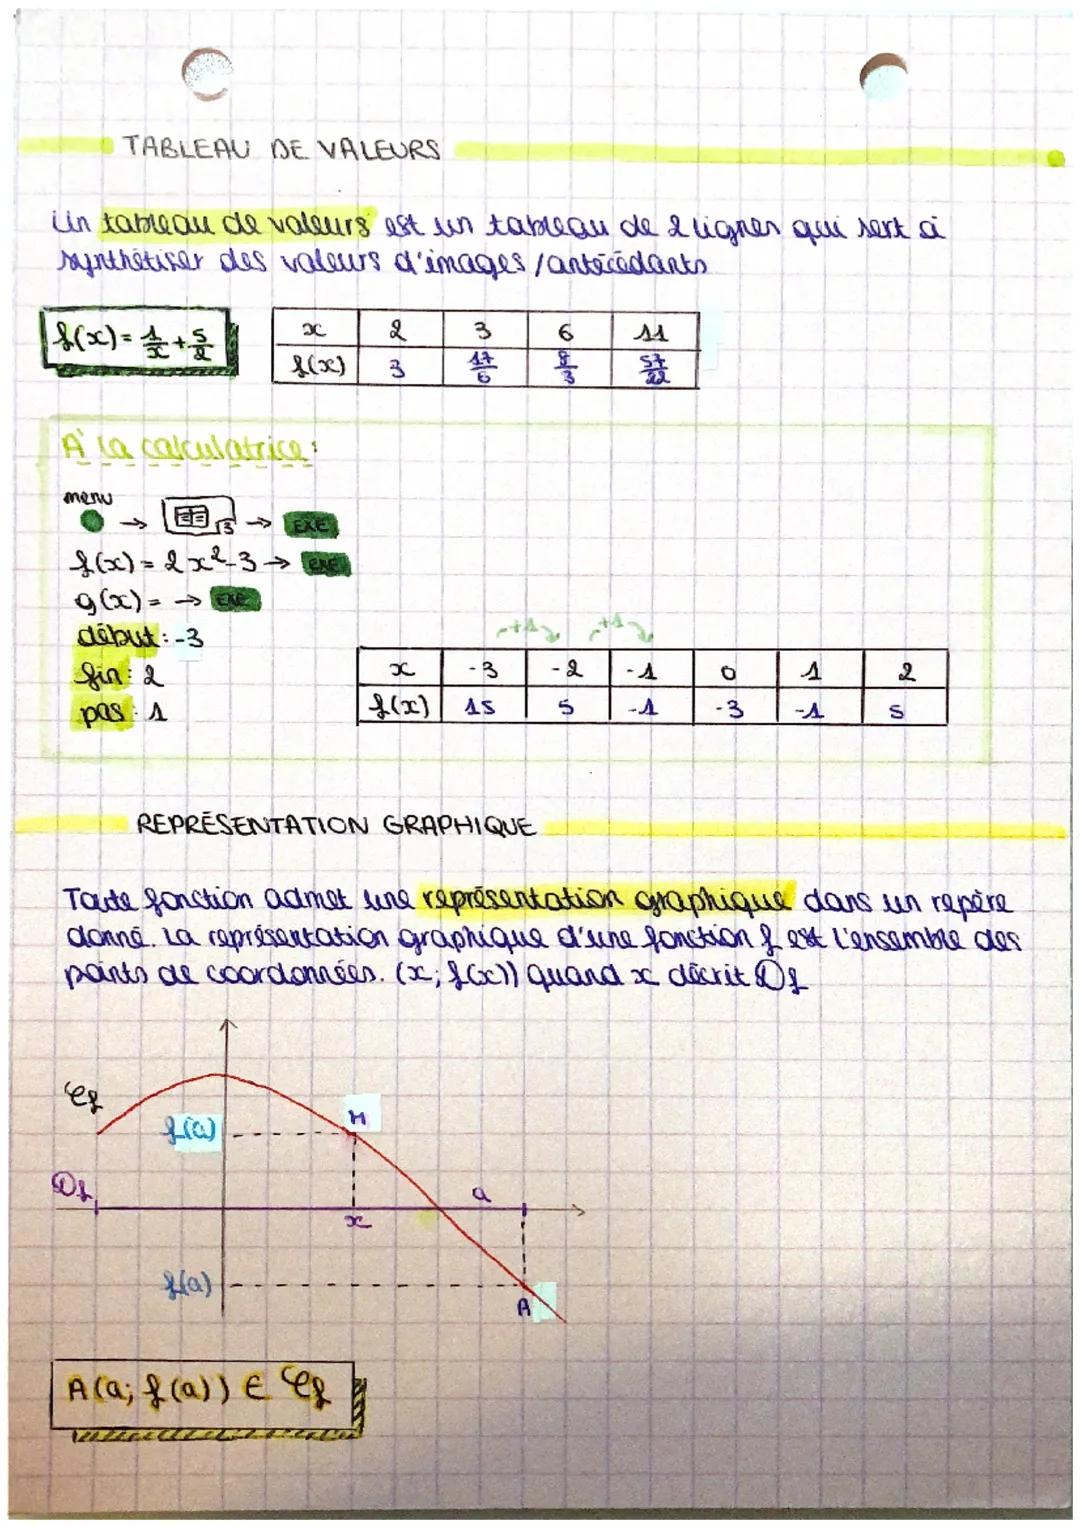 TABLEAU DE VALEURS
Un tableau de valeurs est un tableau de 2 lignes qui sert à
synthétiser des valeurs d'images / antécédants
f(x) = 1/x + 5/2
x 2 3 6 11
f(x) 3 17/6 8/3 57/22
A' la calculatrice :
menu
→ 3 → EXE
f(x) = 2x²-3 → EXE
g(x) = → EXE
début : -3
fin : 2
pas : 1
+1 +1
x -3 -2 -1 0 1 2
f(x) 15 5 -1 -3 -1 5
REPRÉSENTATION GRAPHIQUE
Toute fonction admet une représentation graphique dans un repère
donné. La représentation graphique d'une fonction f est l'ensemble des
points de coordonnées. (x; f(x)) quand x décrit 𝒟f
𝒞f
f(a)
M
𝒟f
a
x
f(a)
A
A(a; f(a)) ∈ 𝒞f